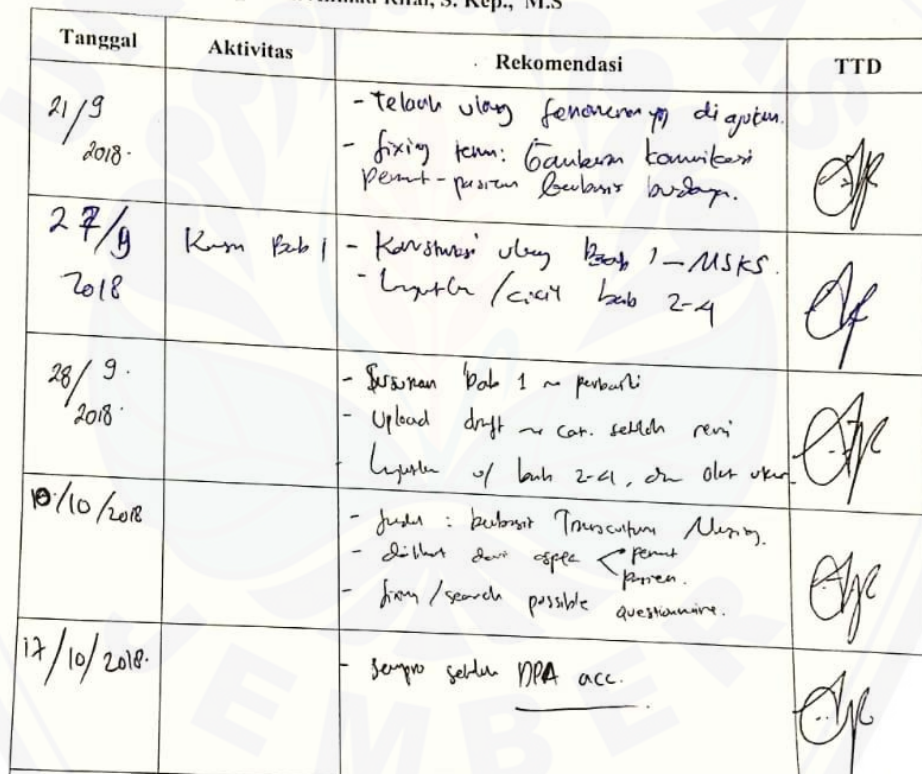 Rifai, S. Kep., M.S
Tanggal Aktivitas Rekomendasi TTD
21/9 2018.
- telaah ulang fenomena yg di ajukan.
- fixing tema: Gambaran komunikasi
perawat-pasien berbasis budaya.
27/9 2018
Bab 1
- Konstruksi ulang Bab 1 - MSKS.
- Lanjutkan / cicil bab 2-4
28/9. 2018.
- Susunan bab 1 ~ perbaiki
- Upload draft ~ cat. setelah revisi
- Lanjutkan u/ bab 2-4, dan alat ukur
10/10/2018
- Judul : berbasis Transcultural Nursing.
- dilihat dari aspek < perawat
pasien.
- fixing / search possible questionnaire.
17/10/2018.
- Sempro setelah DPA acc.
EMBER